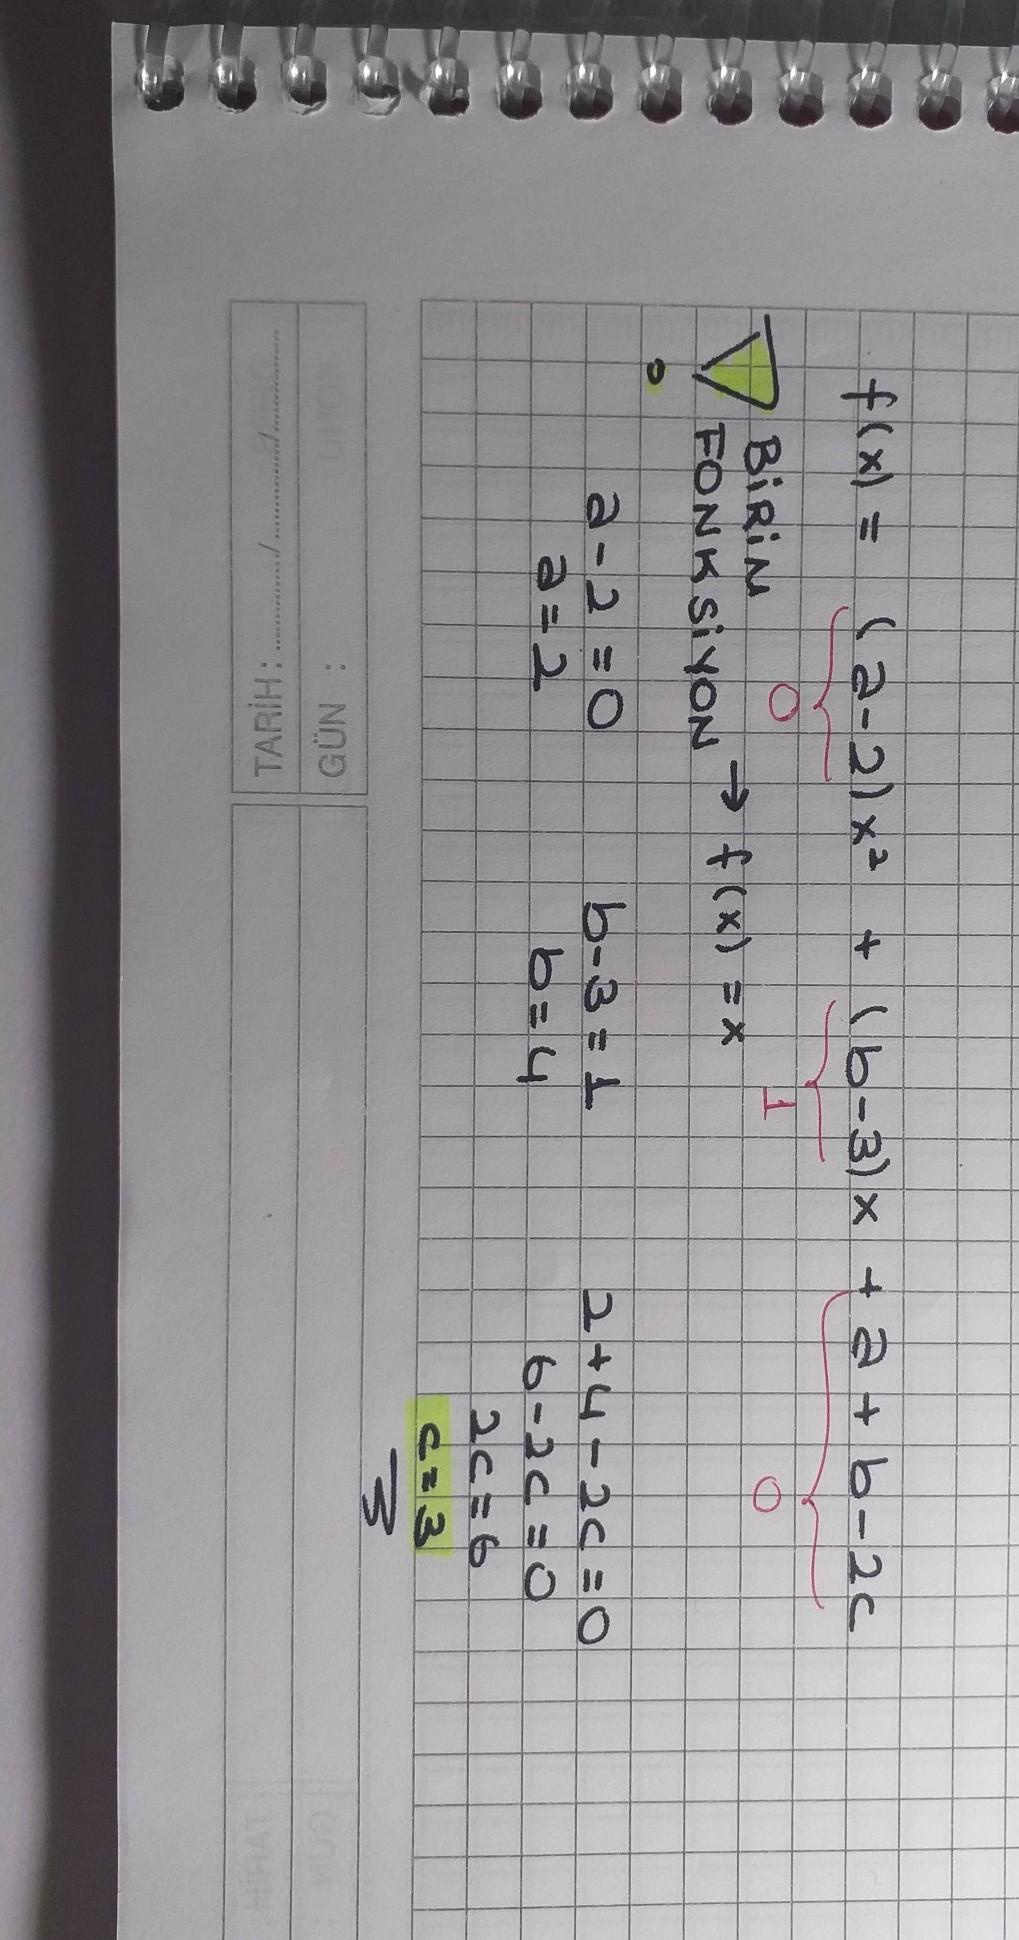 f(x) = (a-2)x² + (b-3)x + a + b - 2c
0 1 0
BİRİM
FONKSİYON → f(x) = x
a - 2 = 0 b - 3 = 1 2 + 4 - 2c = 0
a = 2 b = 4 6 - 2c = 0
2c = 6
c = 3
GÜN :
TARİH : ............/............/............